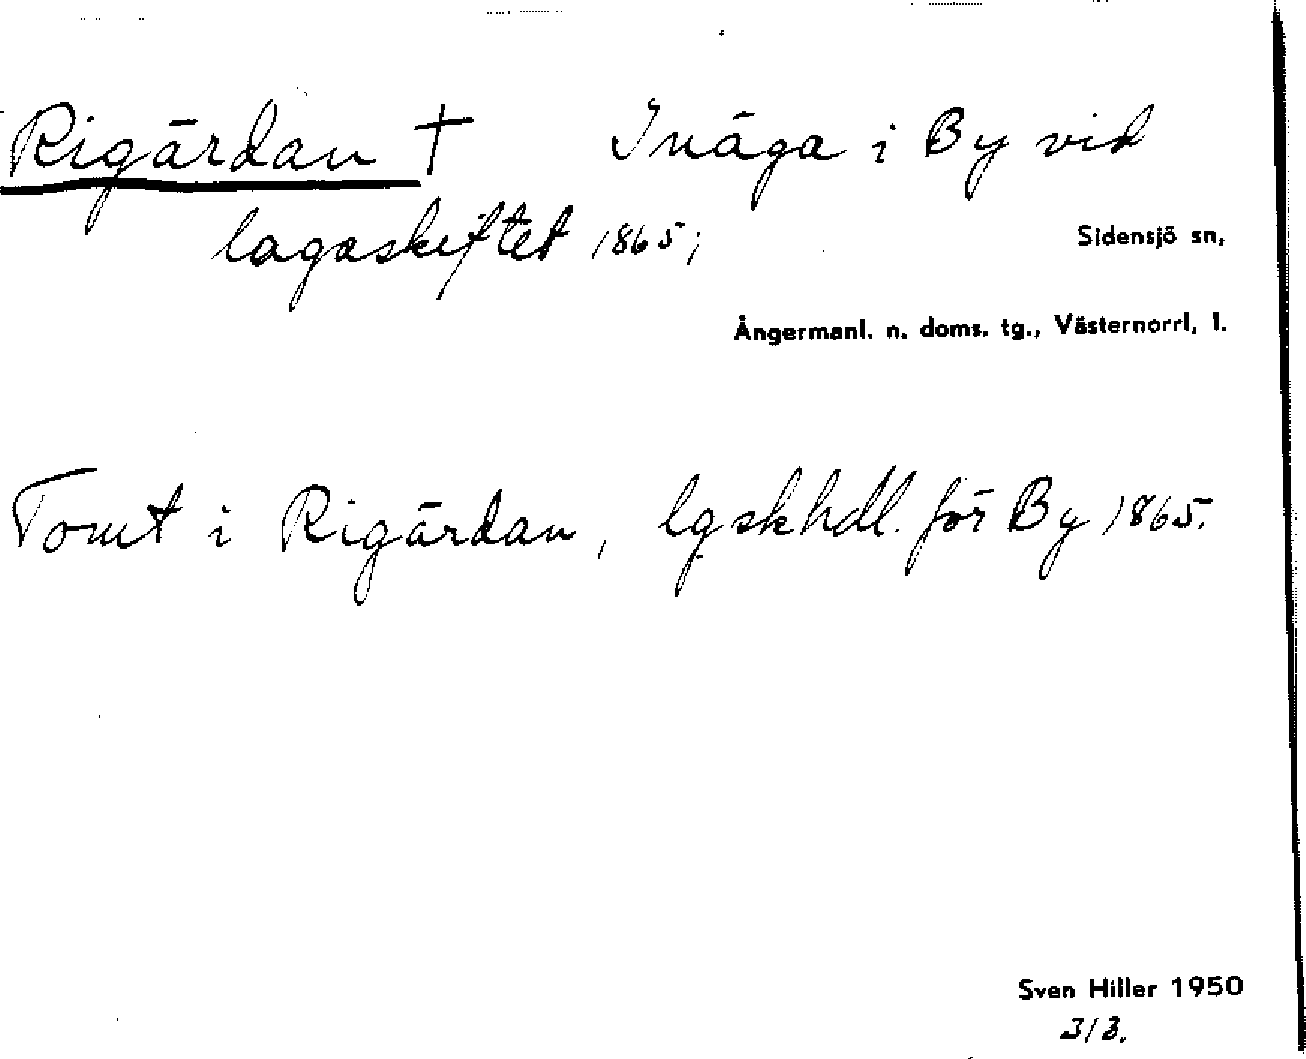 Rigärdan † Inäga i By vid
lagaskiftet 1865;
Sidensjö sn,
Ångermanl. n. doms. tg., Västernorrl. l.
Tomt i Rigärdan, lgskhdl. för By 1865.
Sven Hiller 1950
3/3.